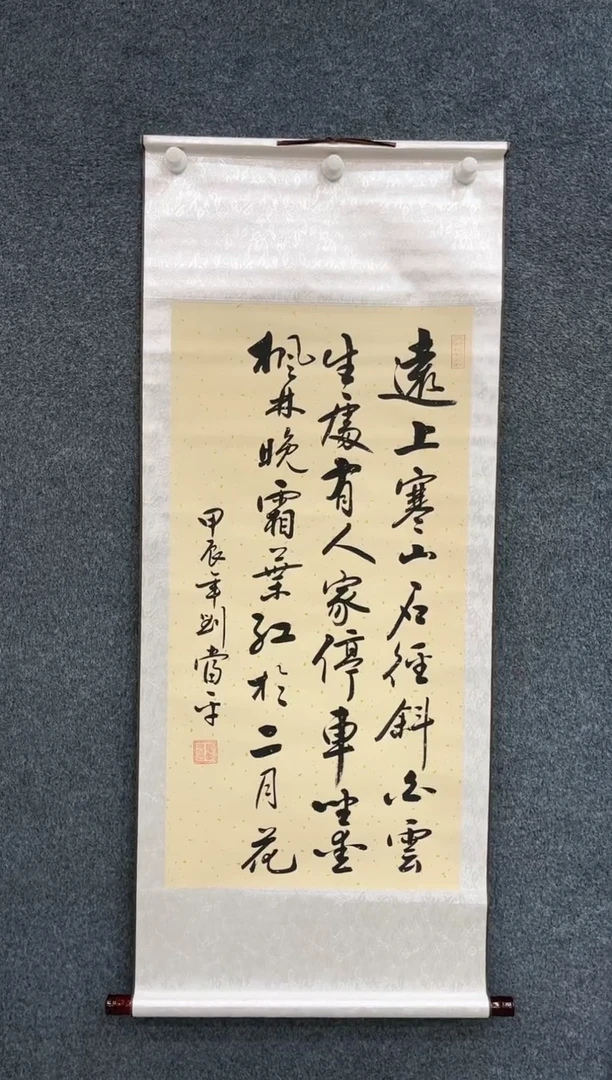 遠上寒山石徑斜白雲
生處有人家停車坐愛
楓林晚霜葉紅於二月花
甲辰年刘當平